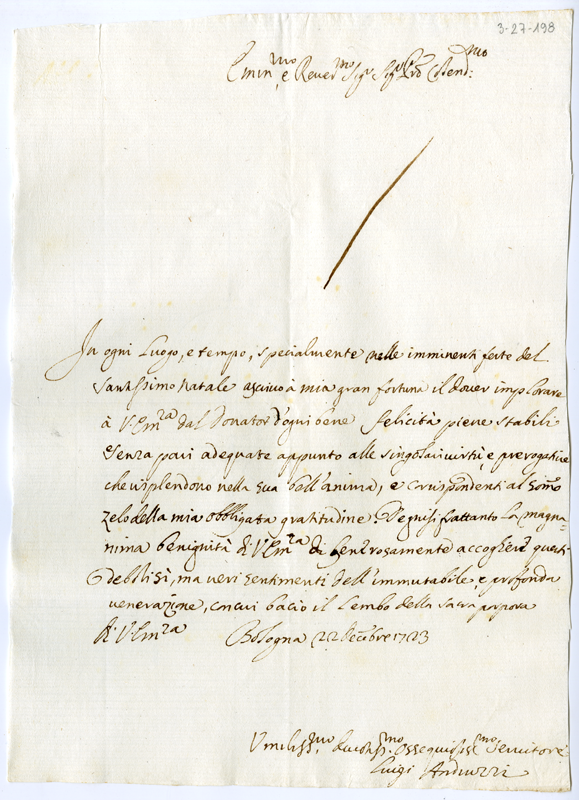 3-27-198
Emin.mo, e Rever.mo Sig.r Sig.r P.rõ Colend.mo:
In ogni Luogo, e tempo, specialmente nelle imminenti feste del
Santissimo Natale ascrivo à mia gran fortuna il dover implorare
à V. Em.za dal Donator d'ogni bene felicità piene stabili
e senza pari adequate appunto alle singolari virtù, e prerogative
che risplendono nella sua bell'anima, e corrispondenti al som̃o
zelo della mia obbligata gratitudine. Degnisi frattanto la magna-
nima benignità di V. Em.za di generosamente accogliere questi
debolisi, ma veri sentimenti dell'immutabile, e profonda
venerazione, con cui bacio il Lembo della sacra porpora
di V. Em.za Bologna 22 Dec̃mbre 1723
Umiliss.mo, Devotiss.mo Ossequiosiss.mo Servitore
Luigi